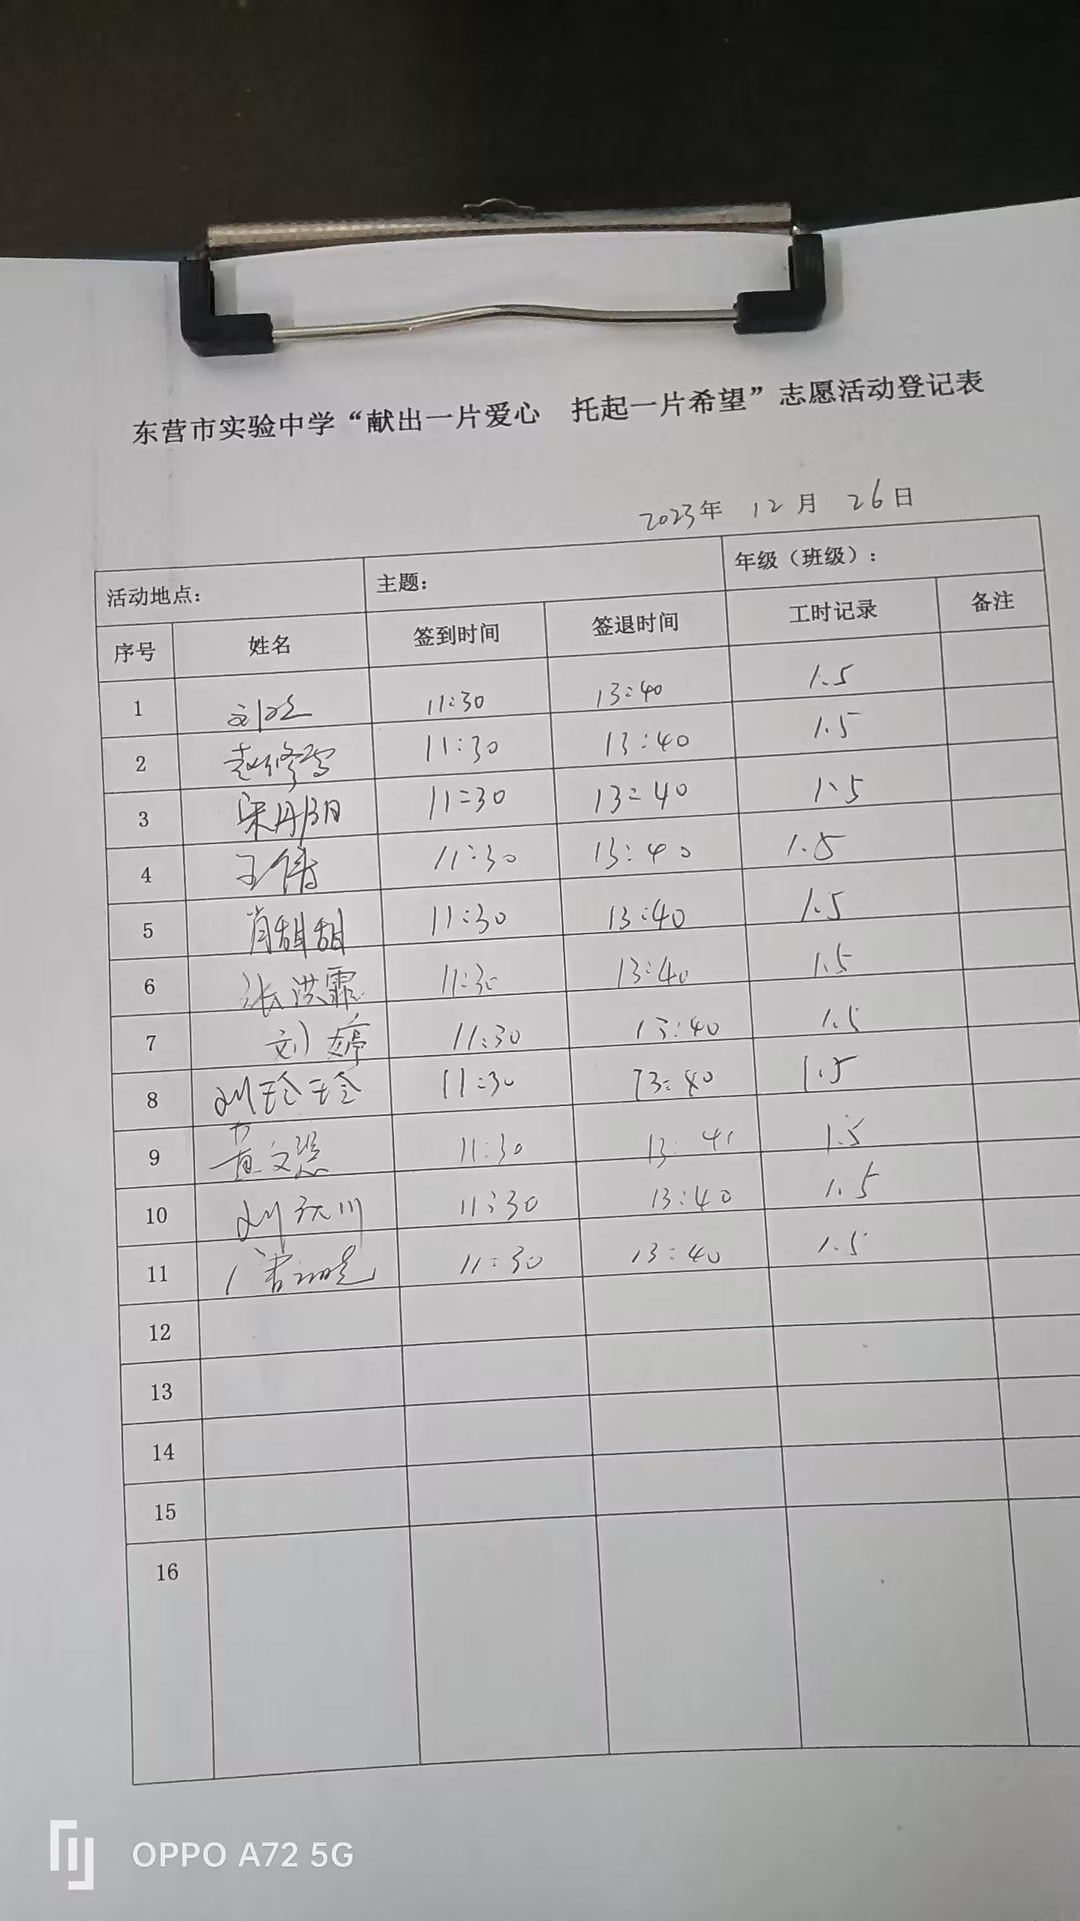 东营市实验中学“献出一片爱心 托起一片希望”志愿活动登记表
2023年 12月 26日
活动地点： 主题： 年级（班级）：
序号 姓名 签到时间 签退时间 工时记录 备注
1 11:30 13:40 1.5
2 赵修雪 11:30 13:40 1.5
3 宋丹阳 11:30 13:40 1.5
4 王倩 11:30 13:40 1.5
5 肖甜甜 11:30 13:40 1.5
6 张洪霏 11:30 13:40 1.5
7 刘婷 11:30 13:40 1.5
8 刘玲玲 11:30 13:40 1.5
9 黄文 11:30 13:41 1.5
10 刘 川 11:30 13:40 1.5
11 11:30 13:40 1.5
12
13
14
15
16
OPPO A72 5G